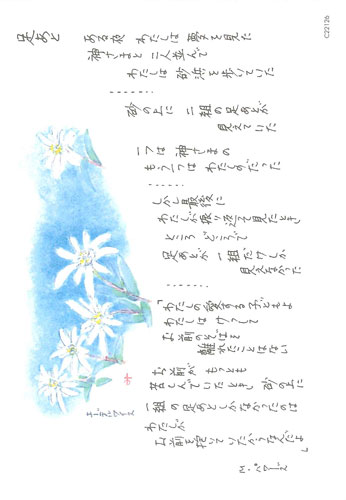 C22126
足あと
ある夜 わたしは 夢を見た
神さまと 二人並んで
わたしは 砂浜を歩いていた
・・・・・・
砂の上に 二組の足あとが
見えていた
一つは 神さまの
もう一つは わたしのだった
・・・・・・
しかし最後に
わたしが振り返って見たとき
ところどころで
足あとが 一組だけしか
見えなかった
「わたしの愛する子どもよ
わたしは けっして
お前のそばを
離れたことはない
お前が もっとも
苦しんでいたとき 砂の上に
一組の足あとしかなかったのは
わたしが
お前を抱いていたからなんだよ」
M・パワーズ
エーデルワイス